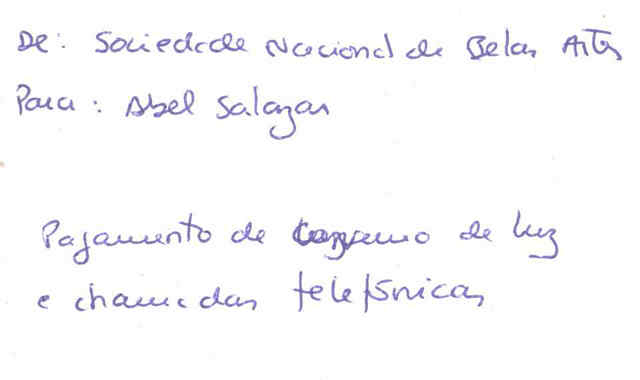 De: Sociedade Nacional de Belas Artes
Para: Abel Salazar
Pagamento de consumo de luz
e chamadas telefónicas